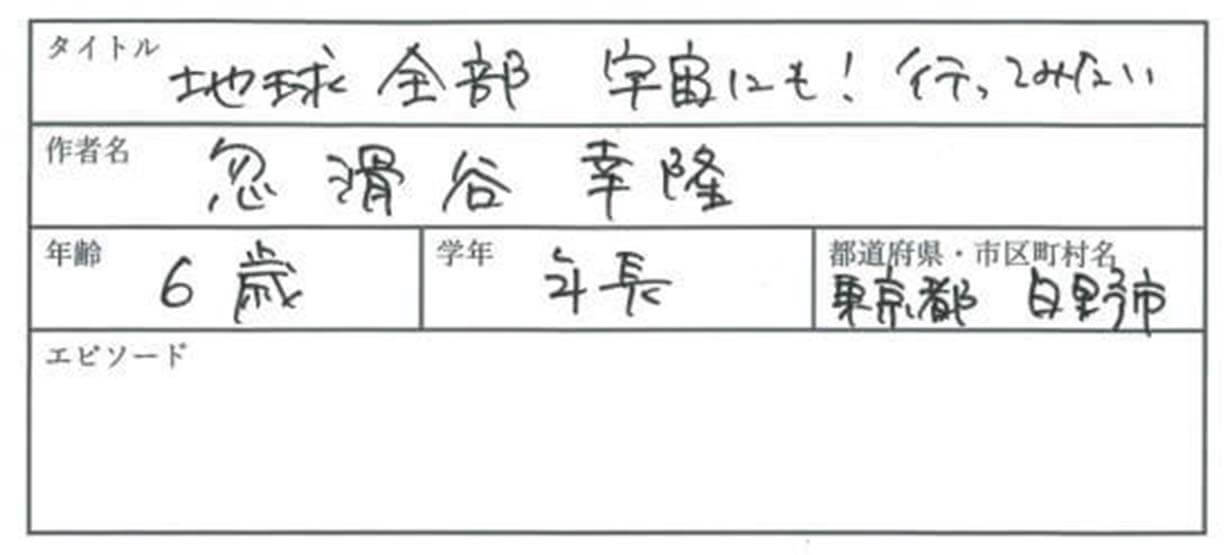 タイトル 地球 全部 宇宙にも! 行ってみたい
作者名 忽滑谷 幸隆
年齢 6歳 学年 年長 都道府県・市区町村名 東京都 日野市
エピソード